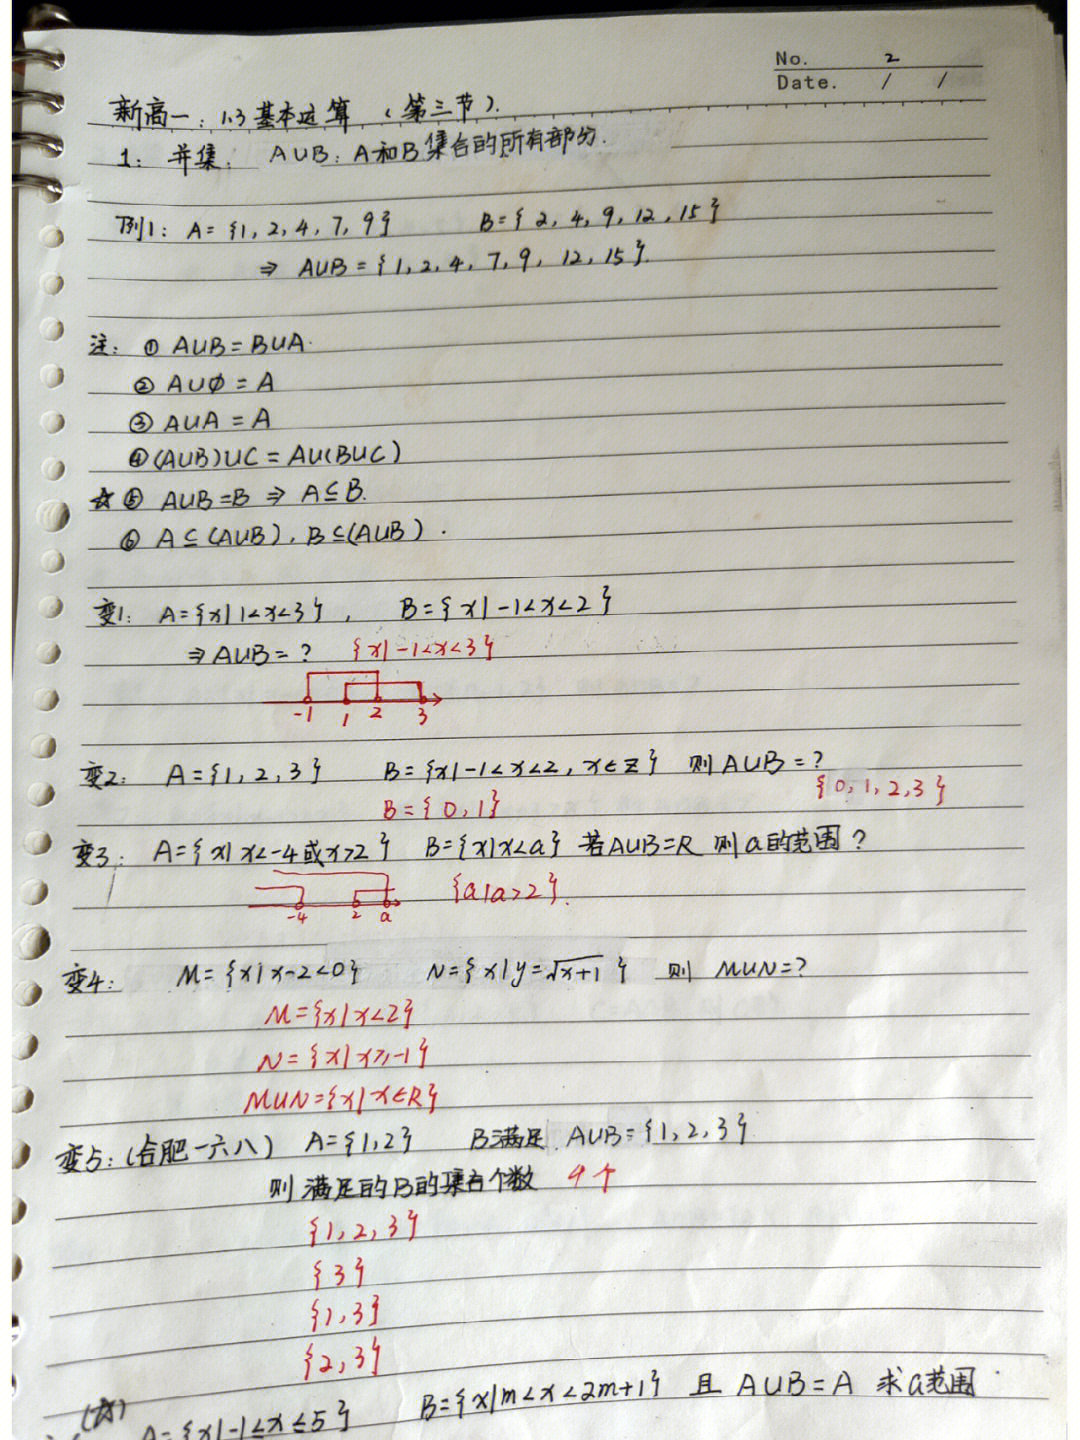 No. 2
Date. / /
新高一：1.3基本运算（第三节）.
1：并集： A∪B：A和B集合的所有部分.
例1：A={1, 2, 4, 7, 9} B={2, 4, 9, 12, 15}
⇒ A∪B={1, 2, 4, 7, 9, 12, 15}.
注：① A∪B=B∪A.
② A∪∅=A
③ A∪A=A
④ (A∪B)∪C=A∪(B∪C)
☆⑤ A∪B=B ⇒ A⊆B.
⑥ A⊆(A∪B), B⊆(A∪B).
变1：A={x|1<x<3}, B={x|-1<x<2}
⇒ A∪B=? {x|-1<x<3}
-1 1 2 3
变2：A={1, 2, 3} B={x|-1<x<2, x∈Z} 则A∪B=?
B={0, 1} {0, 1, 2, 3}
变3：A={x|x<-4或x>2} B={x|x<a} 若A∪B=R 则a的范围?
-4 2 a {a|a>2}.
变4：M={x|x-2<0} N={x|y=√(x+1)} 则 M∪N=?
M={x|x<2}
N={x|x≥-1}
M∪N={x|x∈R}
变5：(合肥一六八) A={1,2} B满足 A∪B={1, 2, 3}
则满足的B的集合个数 4个
{1, 2, 3}
{3}
{1, 3}
{2, 3}
(☆) A={x|-1≤x≤5} B={x|m<x<2m+1} 且 A∪B=A 求a范围